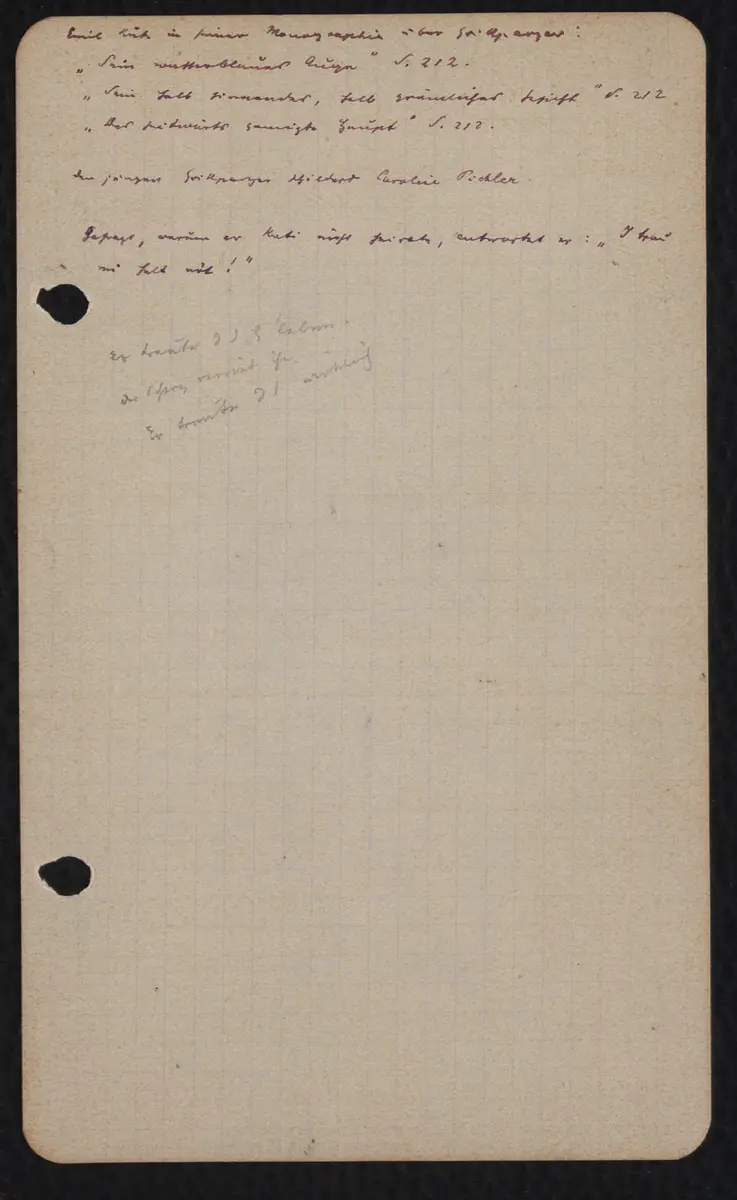 Emil Kuh in seiner Monographie über Grillparzer:
„Sein wasserblaues Auge" S. 212.
„Sein halb sinnendes, halb grämliches Gesicht" S. 212
„Das seitwärts geneigte Haupt" S. 212.
Den jungen Grillparzer schildert Caroline Pichler.
Gefragt, warum er Kati nicht heirate, antwortet er: „I trau
mi halt nöt!"
Er traute
Er traute wirklich